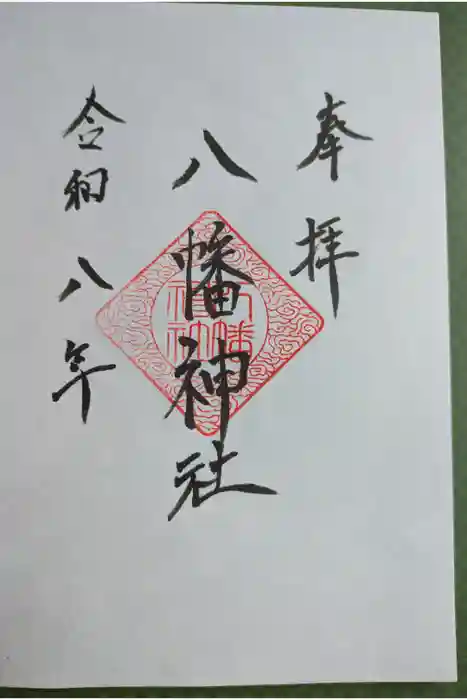 奉拝
八幡神社
八幡
神社
令和八年